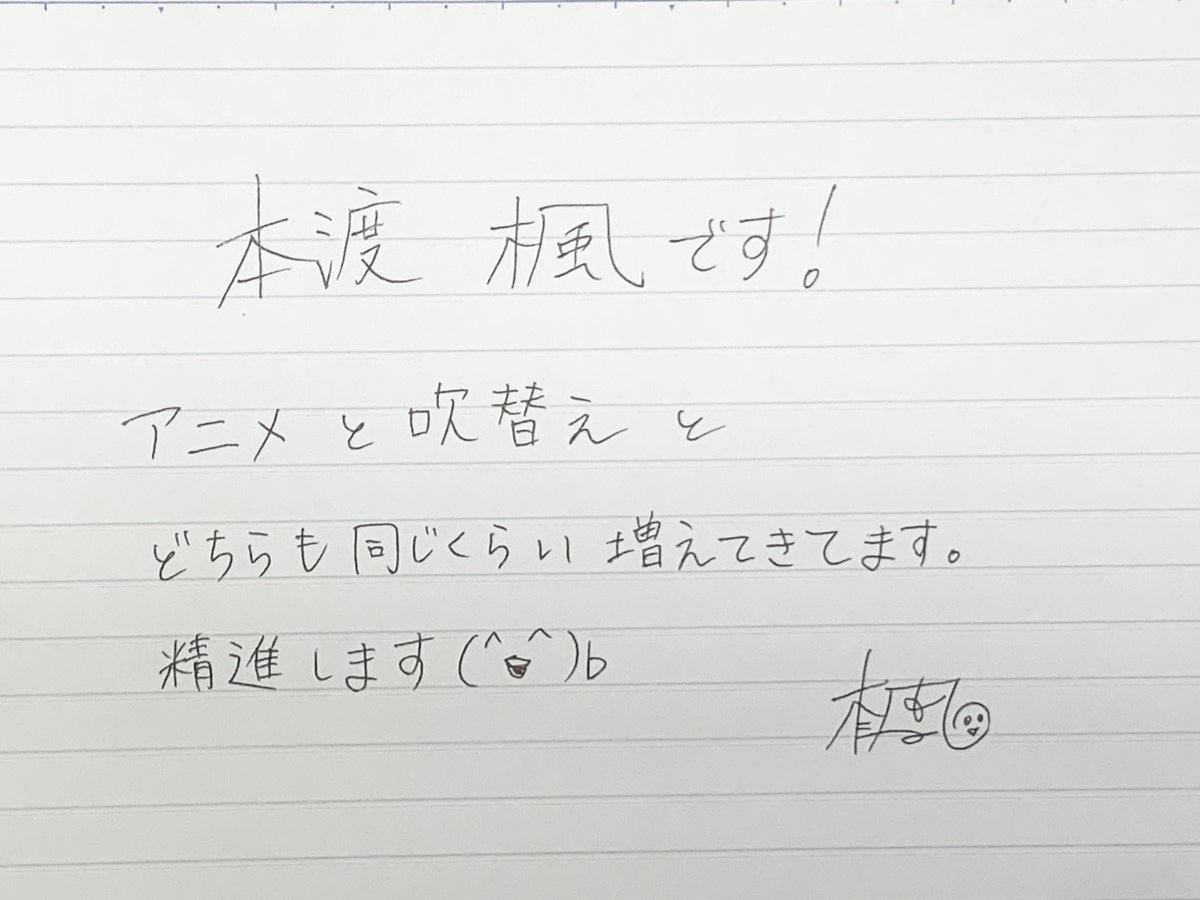 本渡 楓です!
アニメと吹替えと
どちらも同じくらい増えてきてます。
精進します(^o^)b